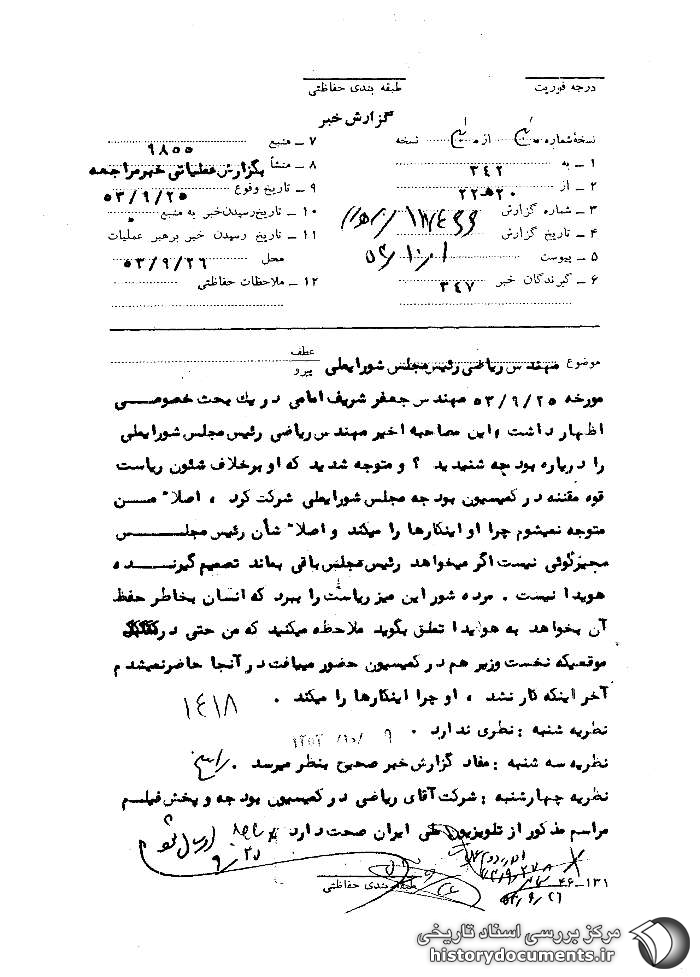 درجه فوریت
طبقه بندی حفاظتی
گزارش خبر
نسخه شماره از نسخه
۱ ـ به ۳۴۲
۲ ـ از ۲۰ هـ ۲۲
۳ ـ شماره گزارش
۴ ـ تاریخ گزارش
۵ ـ پیوست
۶ ـ گیرندگان خبر ۳۴۷
۷ ـ منبع ۹۸۵۵
۸ ـ منشأ بگزارش عملیاتی خبر مراجعه
۹ ـ تاریخ وقوع ۵۳/۹/۲۵
۱۰ ـ تاریخ رسیدن خبر به منبع
۱۱ ـ تاریخ رسیدن خبر برهبر عملیات
محل ۵۳/۹/۲۶
۱۲ ـ ملاحظات حفاظتی
موضوع مهندس ریاضی رئیس مجلس شورایملی
عطف
پیرو
مورخه ۵۳/۹/۲۵ مهندس جعفر شریف امامی در یک بحث خصوصی
اظهار داشت، این مصاحبه اخیر مهندس ریاضی رئیس مجلس شورایملی
را درباره بودجه شنیدید ؟ و متوجه شدید که او برخلاف شئون ریاست
قوه مقننه در کمیسیون بودجه مجلس شورایملی شرکت کرد ، اصلا" من
متوجه نمیشوم چرا او اینکارها را میکند و اصلا" شأن رئیس مجلس
مجیزگوئی نیست اگر میخواهد رئیس مجلس باقی بماند تصمیم گیرنده
هویدا نیست . مرده شور این میز ریاست را ببرد که انسان بخاطر حفظ
آن بخواهد به هویدا تملق بگوید ملاحظه میکنید که من حتی در
موقعیکه نخست وزیر هم در کمیسیون حضور مییافت در آنجا حاضر نمیشدم
آخر اینکه کار نشد ، او چرا اینکارها را میکند .
۱۴۱۸
نظریه شنبه : نظری ندارد .
نظریه سه شنبه : مفاد گزارش خبر صحیح بنظر میرسد .
نظریه چهارشنبه : شرکت آقای ریاضی در کمیسیون بودجه و پخش فیلم
مراسم مذکور از تلویزیون ملی ایران صحت دارد
ارسال شود
طبقه بندی حفاظتی
۱۳۱ـ۴۶
مرکز بررسی اسناد تاریخی
historydocuments.ir